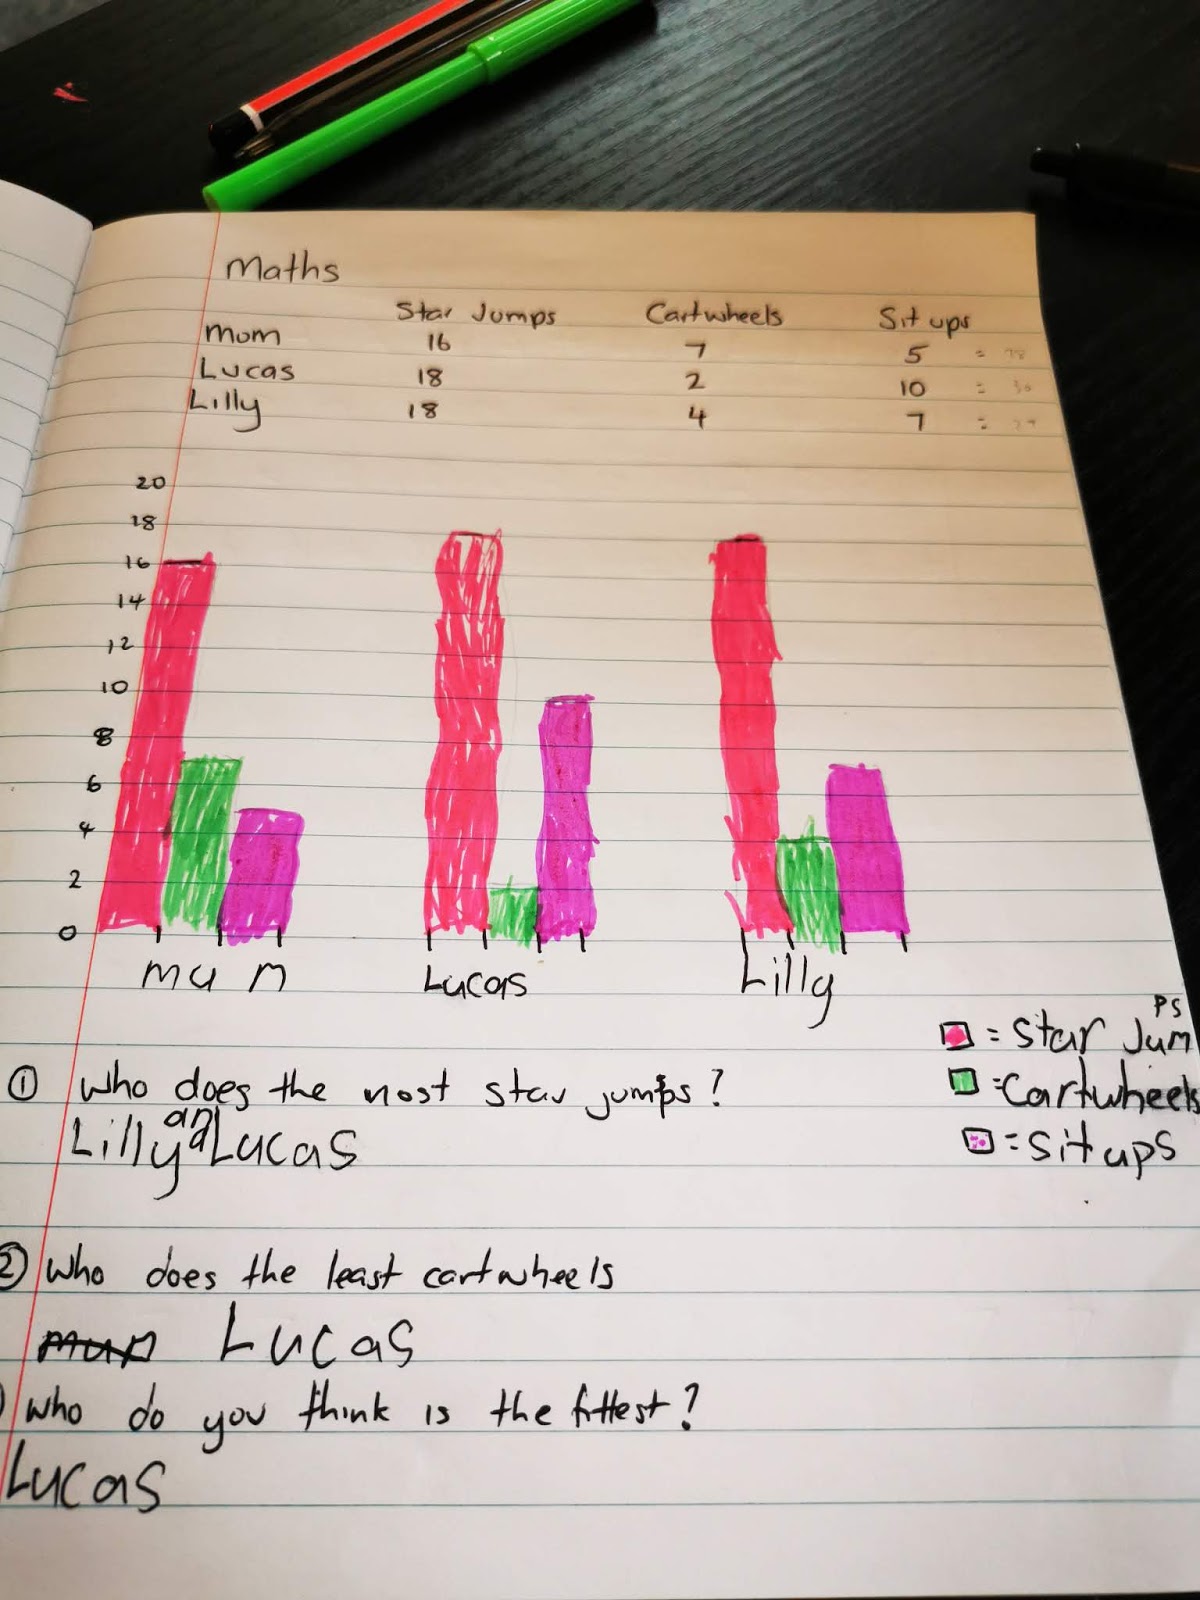 Maths
Star Jumps Cartwheels Sit ups
Mum 16 7 5 =
Lucas 18 2 10 = 30
Lilly 18 4 7 =
20
18
16
14
12
10
8
6
4
2
0
mum Lucas Lilly
= Star Jumps
= Cartwheels
= Sit ups
① Who does the most star jumps?
Lilly and Lucas
② Who does the least cartwheels
mum Lucas
Who do you think is the fittest?
Lucas